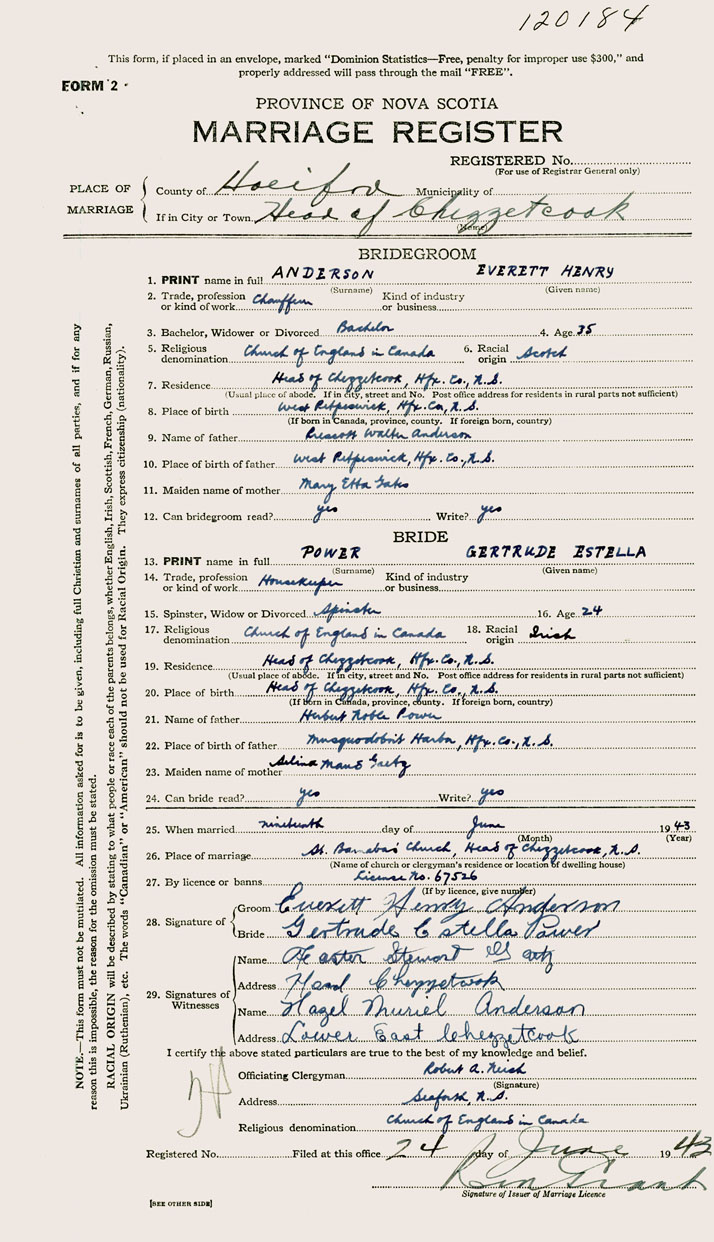 120184
This form, if placed in an envelope, marked "Dominion Statistics—Free, penalty for improper use $300," and
properly addressed will pass through the mail "FREE".
FORM 2
PROVINCE OF NOVA SCOTIA
MARRIAGE REGISTER
REGISTERED No.
(For use of Registrar General only)
PLACE OF MARRIAGE
County of Municipality of
If in City or Town Head of Chezzetcook
(Name)
BRIDEGROOM
1. PRINT name in full ANDERSON EVERETT HENRY
(Surname) (Given name)
2. Trade, profession or kind of work Chauffeur Kind of industry or business
3. Bachelor, Widower or Divorced Bachelor 4. Age 35
5. Religious denomination Church of England in Canada 6. Racial origin Scotch
7. Residence Head of Chezzetcook, Hfx. Co., N.S.
(Usual place of abode. If in city, street and No. Post office address for residents in rural parts not sufficient)
8. Place of birth West Petpeswick, Hfx. Co., N.S.
(If born in Canada, province, county. If foreign born, country)
9. Name of father Prescott Walter Anderson
10. Place of birth of father West Petpeswick, Hfx. Co., N.S.
11. Maiden name of mother Mary Etta Gates
12. Can bridegroom read? yes Write? yes
BRIDE
13. PRINT name in full POWER GERTRUDE ESTELLA
(Surname) (Given name)
14. Trade, profession or kind of work Housekeeper Kind of industry or business
15. Spinster, Widow or Divorced Spinster 16. Age 24
17. Religious denomination Church of England in Canada 18. Racial origin Irish
19. Residence Head of Chezzetcook, Hfx. Co., N.S.
(Usual place of abode. If in city, street and No. Post office address for residents in rural parts not sufficient)
20. Place of birth Head of Chezzetcook, Hfx. Co., N.S.
(If born in Canada, province, county. If foreign born, country)
21. Name of father Herbert Noble Power
22. Place of birth of father Musquodoboit Harbor, Hfx. Co., N.S.
23. Maiden name of mother Selina Maud Gaetz
24. Can bride read? yes Write? yes
25. When married nineteenth day of June 1943
(Month) (Year)
26. Place of marriage St. Barnabas Church, Head of Chezzetcook, N.S.
(Name of church or clergyman's residence or location of dwelling house)
27. By licence or banns License No. 67526
(If by licence, give number)
28. Signature of
Groom Everett Henry Anderson
Bride Gertrude Estella Power
29. Signatures of Witnesses
Name Stewart
Address Head Chezzetcook
Name Hazel Muriel Anderson
Address Lower East Chezzetcook
I certify the above stated particulars are true to the best of my knowledge and belief.
Officiating Clergyman Robert A.
(Signature)
Address Seaforth, N.S.
Religious denomination Church of England in Canada
Registered No. Filed at this office 24 day of June 1943
Grant
Signature of Issuer of Marriage Licence
[SEE OTHER SIDE]
NOTE.—This form must not be mutilated. All information asked for is to be given, including full Christian and surnames of all parties, and if for any
reason this is impossible, the reason for the omission must be stated.
RACIAL ORIGIN will be described by stating to what people or race each of the parents belongs, whether English, Irish, Scottish, French, German, Russian,
Ukrainian (Ruthenian), etc. The words "Canadian" or "American" should not be used for Racial Origin. They express citizenship (nationality).